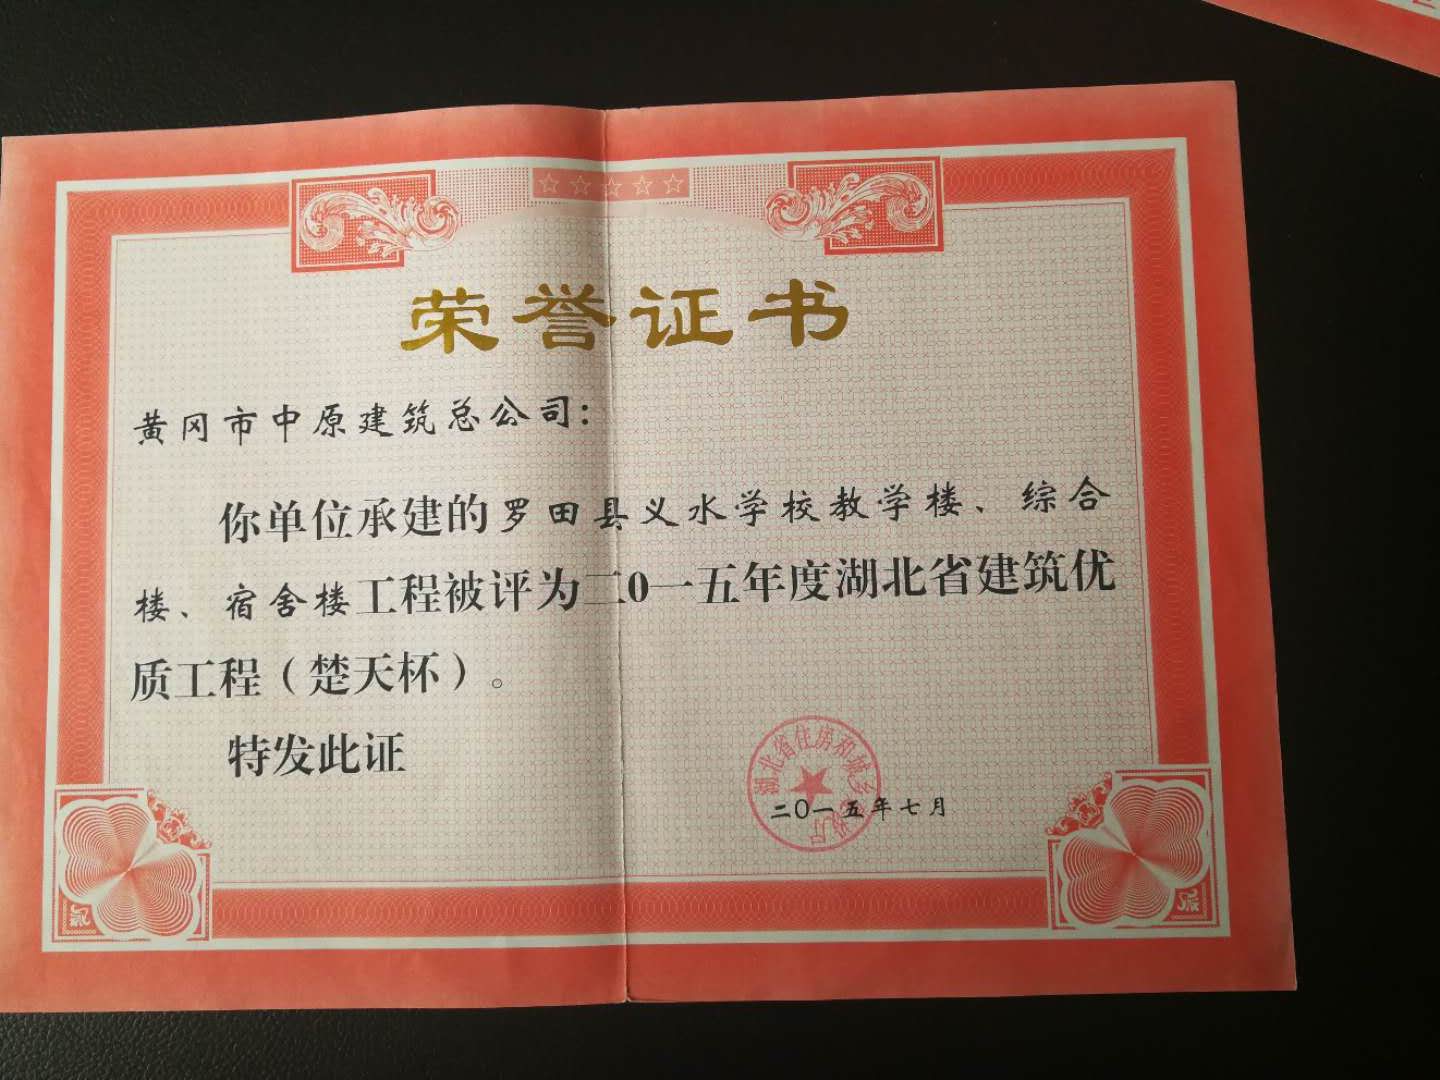 荣誉证书
黄冈市中原建筑总公司:
你单位承建的罗田县义水学校教学楼、综合
楼、宿舍楼工程被评为二0一五年度湖北省建筑优
质工程（楚天杯）。
特发此证
湖北省住房和城乡
二〇一五年七月